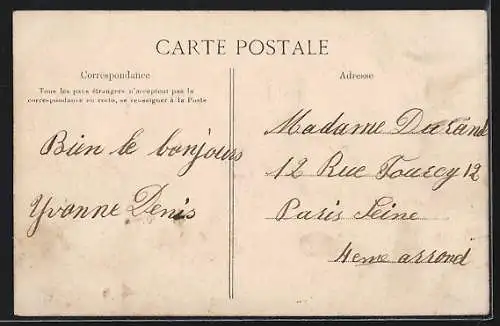 CARTE POSTALE
Correspondance
Tous les pays étrangers n'acceptent pas la
correspondance au recto, se renseigner à la Poste
Bien le bonjours
Yvonne Denis
Adresse
Madame Durand
12 Rue Fourcy 12
Paris Seine
4eme arrond